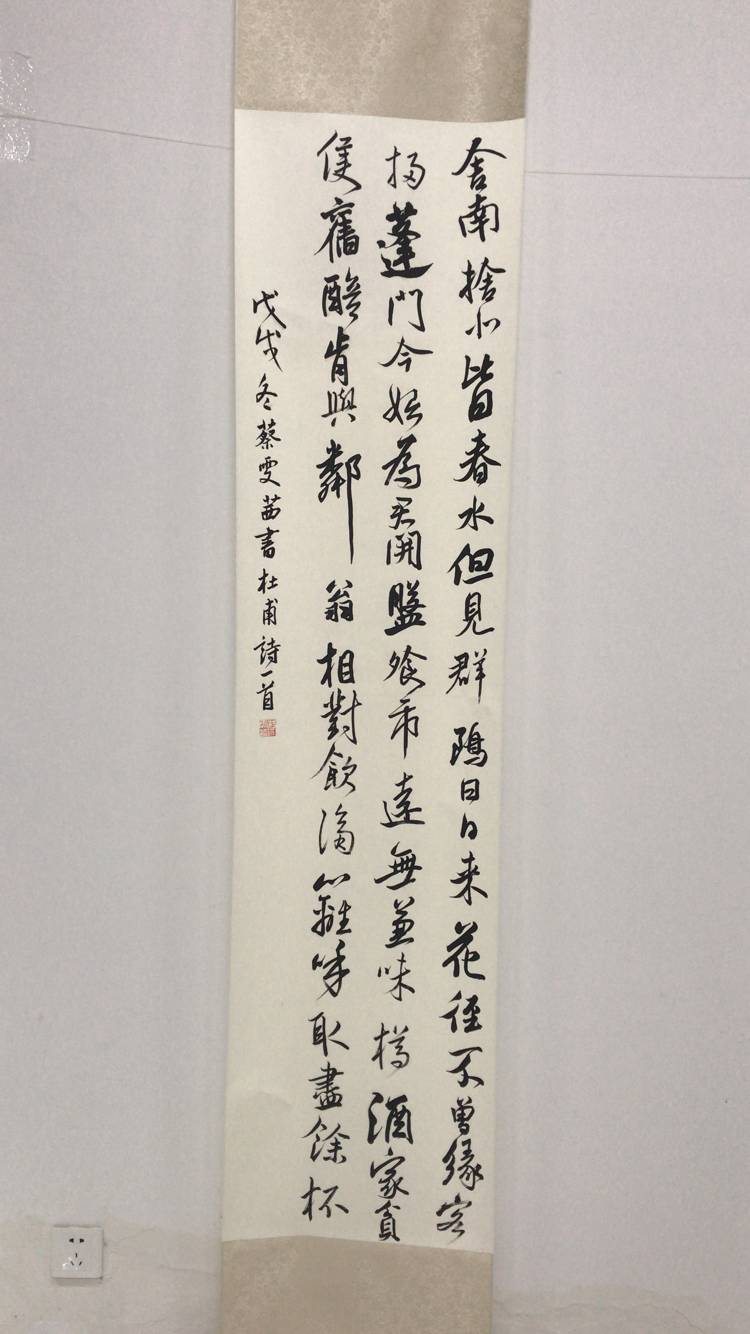 舍南捨北皆春水但見群鷗日日来花徑不曾緣客
掃蓬門今始為君開盤飧市遠無兼味樽酒家貧
隻舊醅肯與鄰翁相對飲隔籬呼取盡餘杯
戊戌冬蔡雯茜書杜甫詩一首